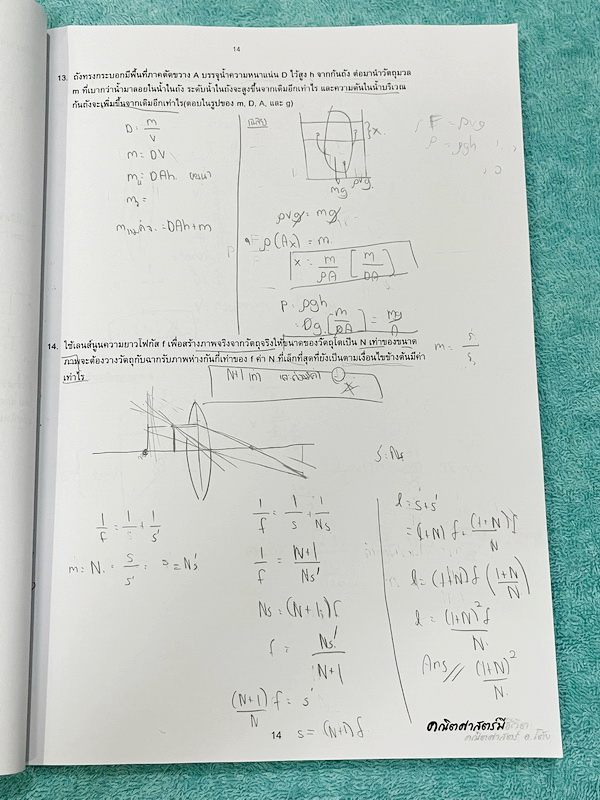 14
13. ถังทรงกระบอกมีพื้นที่ภาคตัดขวาง A บรรจุน้ำความหนาแน่น D ไว้สูง h จากก้นถัง ต่อมานำวัตถุมวล
m ที่เบากว่าน้ำมาลอยในน้ำในถัง ระดับน้ำในถังจะสูงขึ้นจากเดิมอีกเท่าไร และความดันในน้ำบริเวณ
ก้นถังจะเพิ่มขึ้นจากเดิมอีกเท่าไร(ตอบในรูปของ m, D, A, และ g)
D = m/V
m = DV
DAh
= DAh + m
x
mg
ρvg
F = ρvg
P = ρgh
ρvg = mg
ρ(Ax) = m
x = m/ρA [m/DA]
P = ρgh
= Dg [m/DA] = mg/A
14. ใช้เลนส์นูนความยาวโฟกัส f เพื่อสร้างภาพจริงจากวัตถุจริงให้ขนาดของวัตถุโตเป็น N เท่าของขนาด
ภาพจะต้องวางวัตถุกับฉากรับภาพห่างกันกี่เท่าของ f ค่า N ที่เล็กที่สุดที่ยังเป็นตามเงื่อนไขข้างต้นมีค่า
เท่าไร
m = s'/s
1/f = 1/s + 1/s'
m = N = s/s' = s = Ns'
1/f = 1/s + 1/Ns
1/f = N+1/Ns'
Ns = (N+1)f
f = Ns'/N+1
(N+1)/N f = s'
s = (N+1)f
l = s + s'
= (1+N)f + (1+N)f/N
l = (1+N)f (1+N/N)
l = (1+N)²f/N
Ans // (1+N)²/N
14
คณิตศาสตร์มี